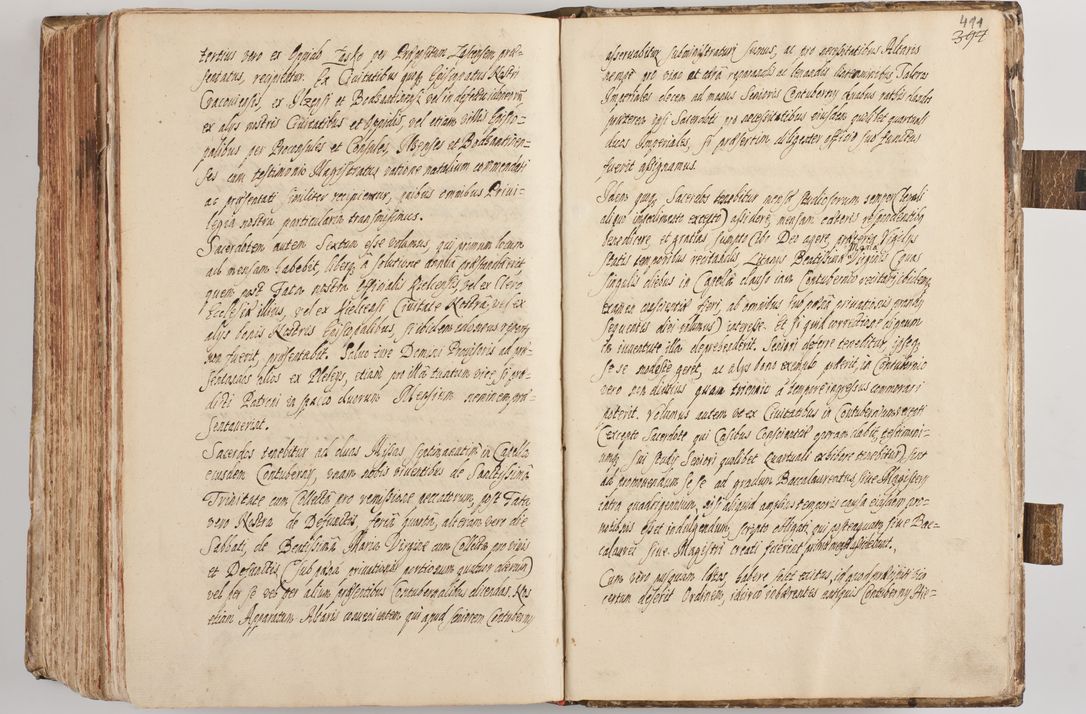 tertius vero ex Oppido Tasko per Præpositum præ-
sentatus, recipietur. Ex Civitatibus quoq Episcopatus Nostri
Cracoviensis, ex Ilzensi et Bodzantinensi, vel in defectu idoneorum
ex alijs nostris Civitatibus et Oppidis, vel etiam villis Episco-
palibus per Proconsules et Consules, Ilzenses et Bodzantinen-
ses cum testimonio Magistratus ratione natalium commendati
ac præsentati similiter recipientur, quibus omnibus Privi-
legia nostra particularia transmisimus.
Sacerdotem autem Sextum esse volumus, qui primum locum
ad mensam habebit, liber à solutione præstandæ erit
quem post fata nostra Officialis Kielcensis, vel ex Clero
Ecclesiæ illius, vel ex Kielcensi Civitate Nostra, vel ex
alijs bonis Nostris Episcopalibus, si ibidem idoneus reperiri
non fuerit, præsentabit. Salvo iure Domini Provisoris ad præ-
sentandos alios ex Plebeijs, etiam pro illa tantum vice si præ-
dicti Patroni in spacio duorum Mensium neminem præ-
sentaverint.
Sacerdos tenebitur ad duas Missas septimanatim in Capella
eiusdem Contubernij, unam nobis viventibus de Sanctissima
Trinitate cum Collecta pro remissione peccatorum, post Fata
vero Nostra de Defunctis, feria quarta, alteram vero die
Sabbati, de Beatissima Maria Virgine cum Collectis pro vivis
et Defunctis (sub pæna privationis portionum quatuor dierum)
vel per se vel per alium præsentibus Contubernalibus dicendas. Nos
etiam Apparatum Altaris convenientem qui apud Seniorem Contubernij
411
397
asservabitur subministraturi sumus, ac pro necessitatibus Altaris
nempe pro vino et cera reparandis ac lavandis Taleros
Imperiales decem ad manus Senioris Contubernij quibus
præterea ipsi Sacerdoti pro necessitatibus eiusdem quolibet quartuali
duos Imperiales, si præsertim diligenter officio suo functus
fuerit assignamus.
Idem quoq Sacerdos tenebitur mensæ Studiosorum semper (legali
aliquo impedimento excepto) assidere, mensam cæteris respondentibus
benedicere, et gratias, sumpto cibo Deo agere, præterea Vigilijs
statis temporibus recitandis Litanijs Beatissimæ Mariæ Virginis quas
singulis diebus in Capella clauso iam Contubernio recitari, ibidemq
examen conscientiæ fieri, ab omnibus sub pæna privationis prandij
sequentis diei volumus) interesse. Et si quid correctione dignum
in iuventute illa deprehenderit, Seniori deferre tenebitur, ipseq
se se modeste geret, ac alijs bono exemplo præerit, in Contubernio
vero non diutius quam triennio à tempore ingressus commorari
poterit. Volumus autem ut ex Civitatibus in Contubernium recepti
(excepto Sacerdote qui Casibus Conscientiæ operam dabit, testimoni-
umq sui studij Seniori quolibet Quartuali exhibere tenebitur), sint
ad promovendum se se ad gradum Baccalaureatus, sive Magisterij
intra quadriennium, nisi aliquid amplius temporis causa eiusdem pro-
motionis esset indulgendum, scripto obligati, qui postea quam sive Bac-
calaurei sive Magistri creati fuerint
Cum vero nusquam locus habere solet exitus, id quod
certum deserit Ordinem, idcirco inhærentes antiquis Contubernij Hie-